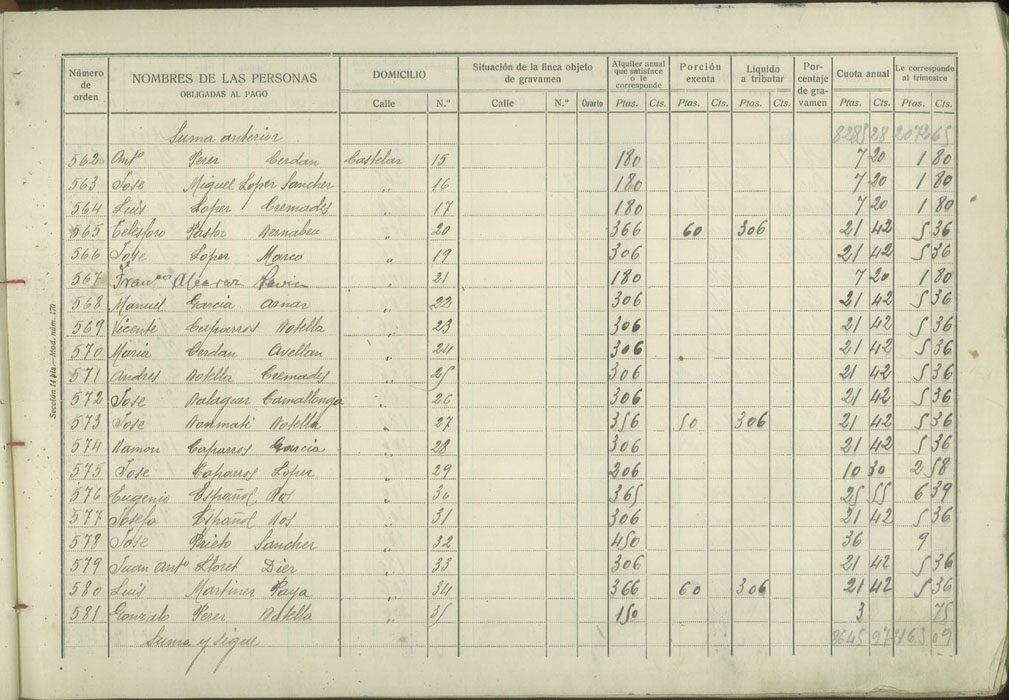 Número de orden | NOMBRES DE LAS PERSONAS OBLIGADAS AL PAGO | DOMICILIO | Situación de la finca objeto de gravamen | Alquiler anual que satisface o le corresponde | Porción exenta | Liquido a tributar | Porcentaje de gravamen | Cuota anual | Le corresponde al trimestre
Calle | N.º | Calle | N.º | Cuarto | Ptas. | Cts. | Ptas. | Cts. | Ptas. | Cts. | Ptas. | Cts. | Ptas. | Cts.
Suma anterior 8285 28 2072 65
562 Antº Perez Cerdan Castelar 15 180 7 20 1 80
563 Jose Miguel Lopez Sanchez " 16 180 7 20 1 80
564 Luis Lopez Cremades " 17 180 7 20 1 80
565 Telesforo Pastor Bernabeu " 20 366 60 306 21 42 5 36
566 Jose Lopez Marco " 19 306 21 42 5 36
567 Alcaraz " 21 180 7 20 1 80
568 Manuel Garcia Aznar " 22 306 21 42 5 36
569 Vicente Caparros Botella " 23 306 21 42 5 36
570 Maria Cerdan Avellan " 24 306 21 42 5 36
571 Andres Botella Cremades " 25 306 21 42 5 36
572 Jose Balaguer Camallonga " 26 306 21 42 5 36
573 Jose Bonmati Botella " 27 356 50 306 21 42 5 36
574 Ramon Caparros Garcia " 28 306 21 42 5 36
575 Jose Caparros Lopez " 29 206 10 30 2 58
576 Eugenio Español Ros " 30 365 25 55 6 39
577 Josefa Español Ros " 31 306 21 42 5 36
578 Jose Prieto Sanchez " 32 450 36 9
579 Juan Antº Lloret Diez " 33 306 21 42 5 36
580 Luis Martinez Paya " 34 366 60 306 21 42 5 36
581 Gonzalo Perez Botella " 35 150 3 75
Suma y sigue 8645 97 2163 09
Sección 14 bis.—Mod. núm. 170